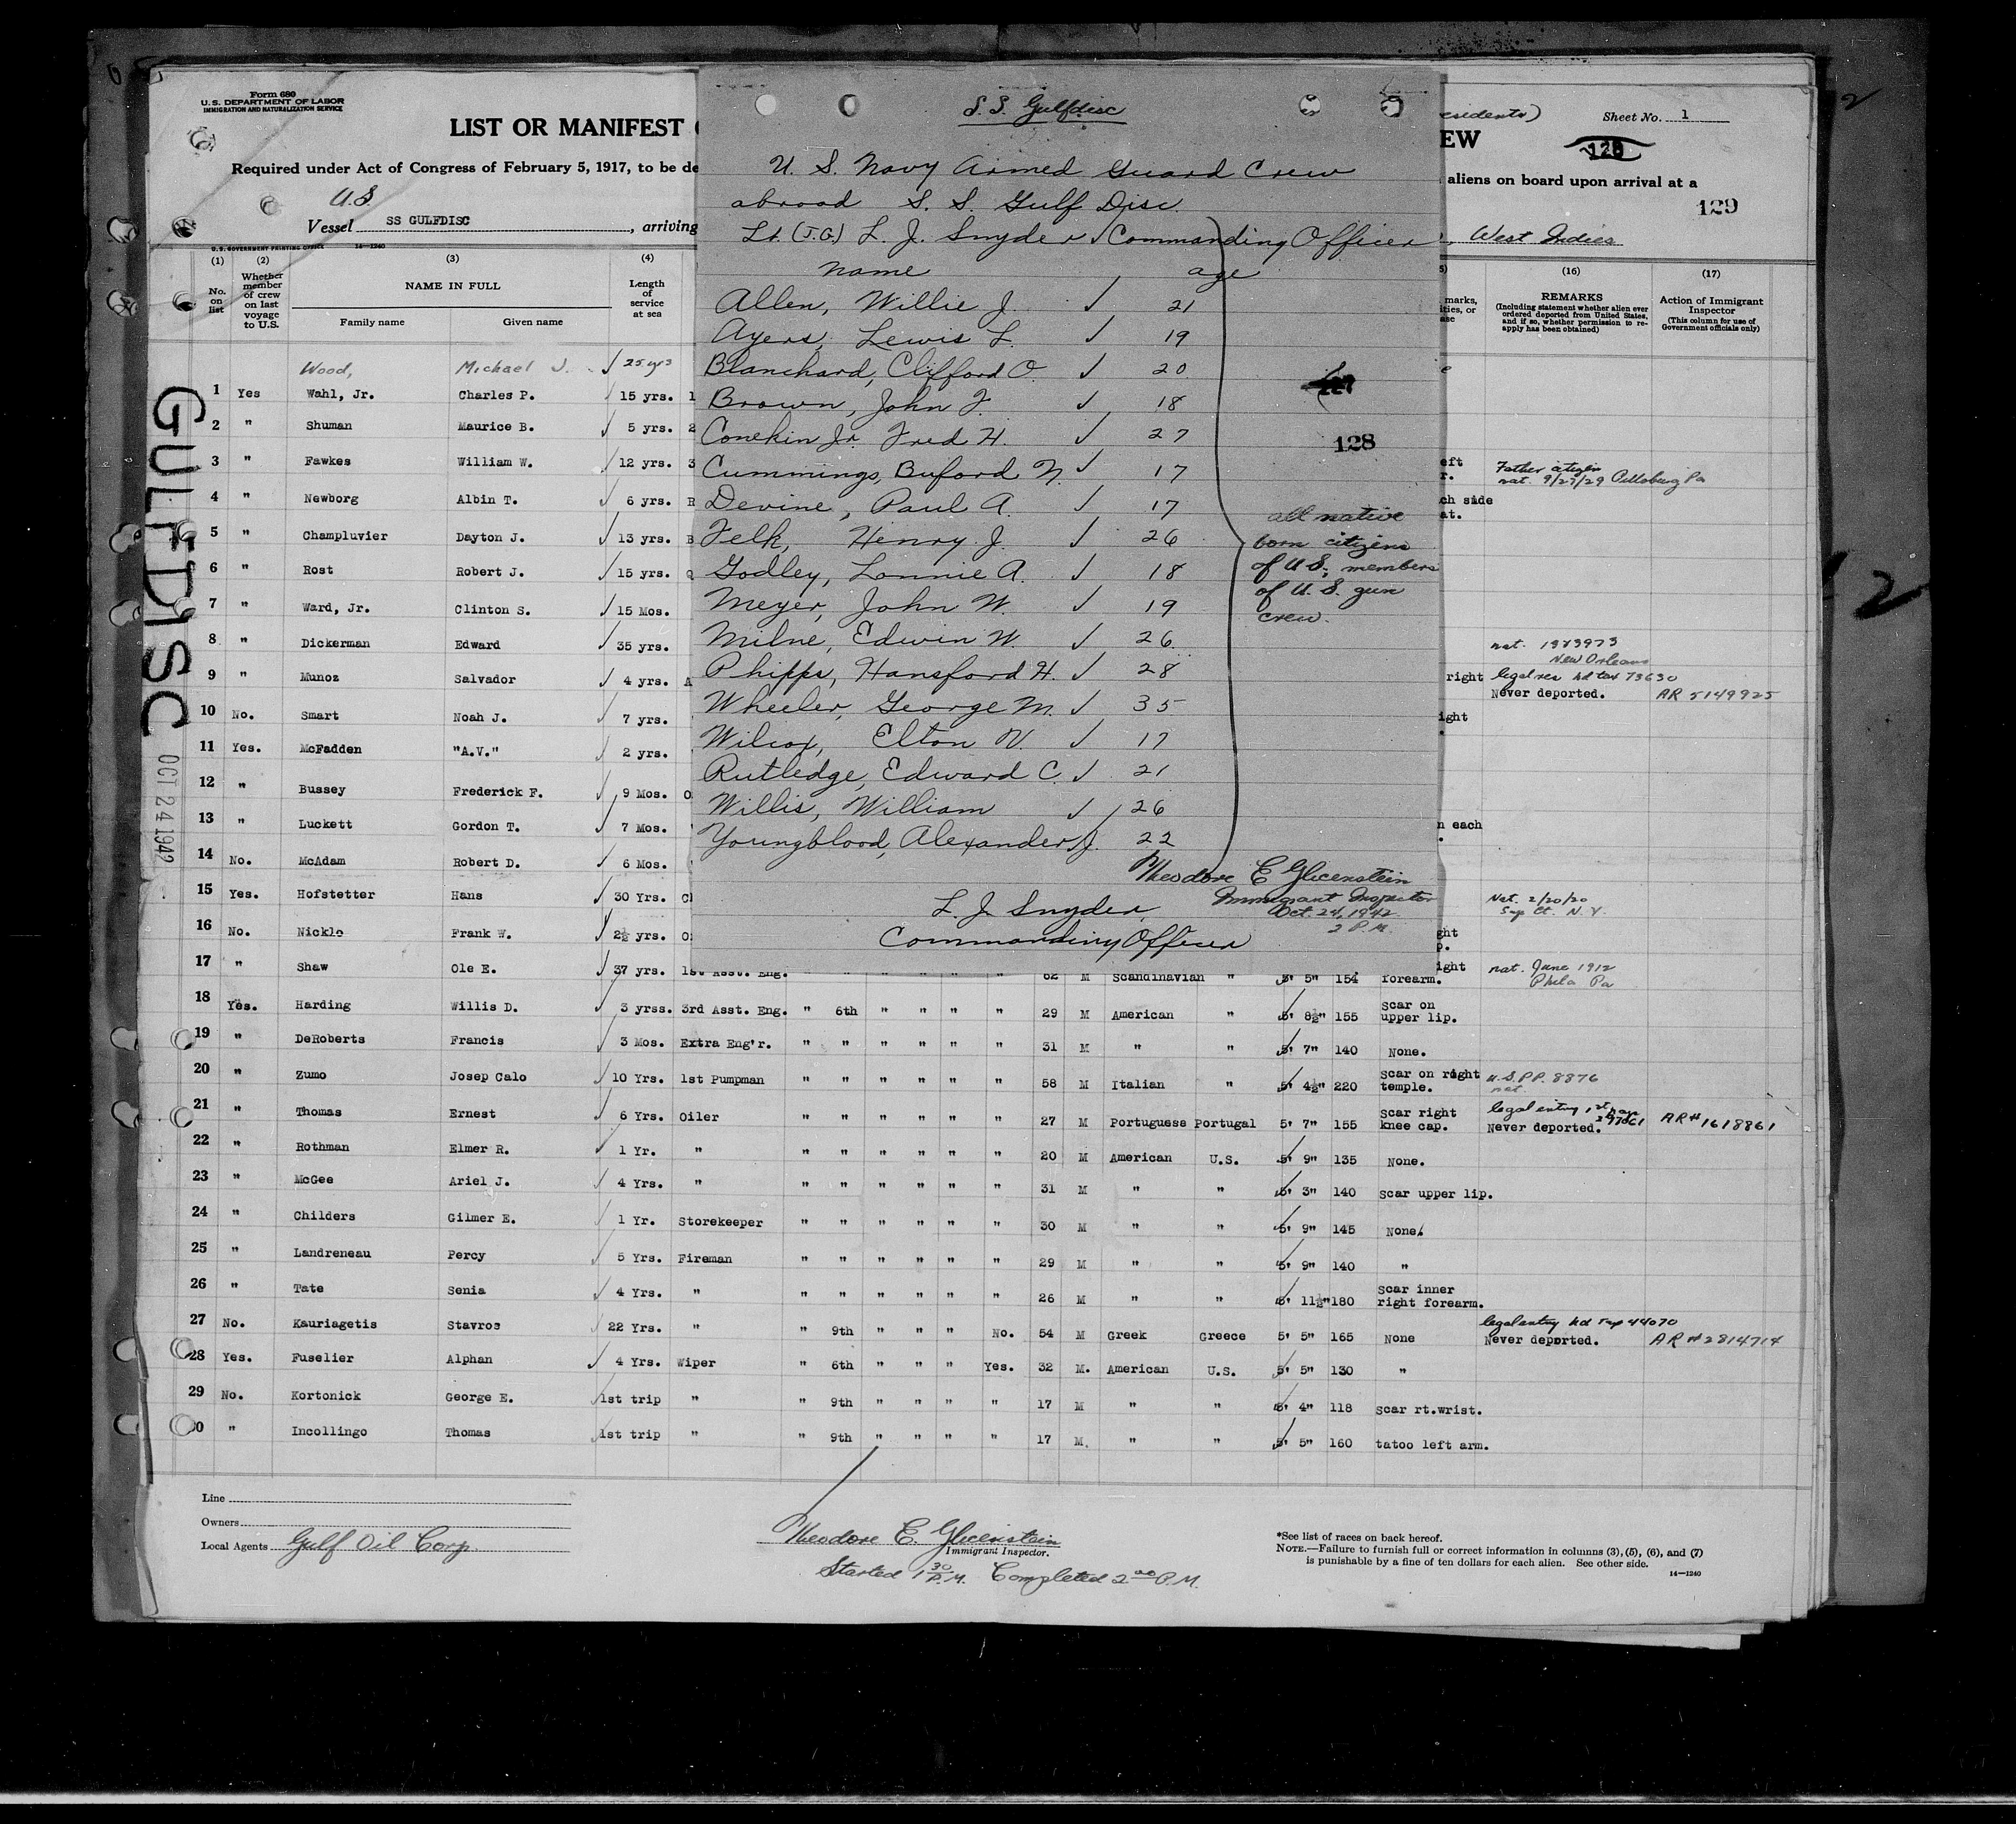 Form 680
U.S. DEPARTMENT OF LABOR
IMMIGRATION AND NATURALIZATION SERVICE
LIST OR MANIFEST
esidents) Sheet No. 1
EW
128
Required under Act of Congress of February 5, 1917, to be de
aliens on board upon arrival at a
129
U.S.
Vessel SS GULFDISC, arriving
West Indies
U.S. GOVERNMENT PRINTING OFFICE 14—1240
(1) (2) (3) (4) (16) (17)
No. on list
Whether member of crew on last voyage to U.S.
NAME IN FULL
Family name Given name
Length of service at sea
marks,
REMARKS
(Including statement whether alien ever ordered deported from United States, and if so, whether permission to re-apply has been obtained)
Action of Immigrant Inspector
(This column for use of Government officials only)
S. S. Gulfdisc
U. S. Navy Armed Guard Crew
abroad S. S. Gulf Disc.
Lt. (J.G.) L. J. Snyder ✓ Commanding Officer
name age
Allen, Willie J. ✓ 21
Ayers, Lewis L. ✓ 19
Blanchard, Clifford O. ✓ 20
Brown, John F. ✓ 18
Conekin Jr. Fred H. ✓ 27
Cummings, Buford N. ✓ 17
Devine, Paul A. ✓ 17
Felk, Henry J. ✓ 26
Godley, Lonnie A. ✓ 18
Meyer, John W. ✓ 19
Milne, Edwin W. ✓ 26
Phipps, Hansford H. ✓ 28
Wheeler, George M. ✓ 35
Wilcox, Elton V. ✓ 17
Rutledge, Edward C. ✓ 21
Willis, William ✓ 26
Youngblood, Alexander J. ✓ 22
127
128
all native
born citizens
of U.S; members
of U.S. gun
crew.
Theodore E Glicenstein
Immigrant Inspector
Oct. 24, 1942
2 P.M.
L. J. Snyder,
Commanding Officer
GULFDISC
OCT 24 1942
2
Wood, Michael J. ✓ 25 yrs
1 Yes Wahl, Jr. Charles P. ✓ 15 yrs. 1
2 " Shuman Maurice B. ✓ 5 yrs. 2
3 " Fawkes William W. ✓ 12 yrs. 3 eft r. Father citizen nat. 9/27/29 Pittsburg Pa
4 " Newborg Albin T. ✓ 6 yrs. R ch side at.
5 " Champluvier Dayton J. ✓ 13 yrs. B
6 " Rost Robert J. ✓ 15 yrs. Q
7 " Ward, Jr. Clinton S. ✓ 15 Mos.
8 " Dickerman Edward ✓ 35 yrs. nat. 1983973 New Orleans
9 " Munoz Salvador ✓ 4 yrs. A right legal res hd tax 73630 Never deported. AR 5149925
10 No. Smart Noah J. ✓ 7 yrs. ight
11 Yes. McFadden "A.V." ✓ 2 yrs.
12 " Bussey Frederick F. ✓ 9 Mos. O
13 " Luckett Gordon T. ✓ 7 Mos. n each
14 No. McAdam Robert D. ✓ 6 Mos.
15 Yes. Hofstetter Hans ✓ 30 Yrs. Ch Nat. 2/20/20 Sup Ct. N.Y.
16 No. Nicklo Frank W. ✓ 2½ yrs. O ght p.
17 " Shaw Ole E. ✓ 37 yrs. 1st Asst. Eng. " " " " " " 62 M Scandinavian " 5' 5" 154 ight forearm. nat. June 1912 Phila Pa
18 Yes. Harding Willis D. ✓ 3 yrss. 3rd Asst. Eng. " 6th " " " " 29 M American " 5' 8½" 155 Scar on upper lip.
19 " DeRoberts Francis ✓ 3 Mos. Extra Eng'r. " " " " " " 31 M " " 5' 7" 140 None.
20 " Zumo Josep Calo ✓ 10 Yrs. 1st Pumpman " " " " " " 58 M Italian " 5' 4½" 220 Scar on right temple. U.S.P.P. 8876 nat.
21 " Thomas Ernest ✓ 6 Yrs. Oiler " " " " " " 27 M Portuguese Portugal 5' 7" 155 Scar right knee cap. legal entry 1st Never deported. AR# 1618861
22 " Rothman Elmer R. ✓ 1 Yr. " " " " " " " 20 M American U.S. 5' 9" 135 None.
23 " McGee Ariel J. ✓ 4 Yrs. " " " " " " " 31 M " " 5' 3" 140 Scar upper lip.
24 " Childers Gilmer E. ✓ 1 Yr. Storekeeper " " " " " " 30 M " " 5' 9" 145 None.
25 " Landreneau Percy ✓ 5 Yrs. Fireman " " " " " " 29 M " " 5' 9" 140 "
26 " Tate Senia ✓ 4 Yrs. " " " " " " " 26 M " " 5' 11½" 180 Scar inner right forearm.
27 No. Kauriagetis Stavros ✓ 22 Yrs. " " 9th " " " No. 54 M Greek Greece 5' 5" 165 None legal entry hd tax 44070 Never deported. AR# 2814714
28 Yes. Fuselier Alphan ✓ 4 Yrs. Wiper " 6th " " " Yes. 32 M. American U.S. 5' 5" 130 "
29 No. Kortonick George E. 1st trip " " 9th " " " " 17 M " " 5' 4" 118 Scar rt.wrist.
30 " Incollingo Thomas 1st trip " " 9th " " " " 17 M. " " 5' 5" 160 tatoo left arm.
Line
Owners
Local Agents Gulf Oil Corp.
Theodore E. Glicenstein
Immigrant Inspector.
Started 1 30 P.M. Completed 2 00 P.M.
*See list of races on back hereof.
NOTE.—Failure to furnish full or correct information in columns (3), (5), (6), and (7)
is punishable by a fine of ten dollars for each alien. See other side.
14—1240